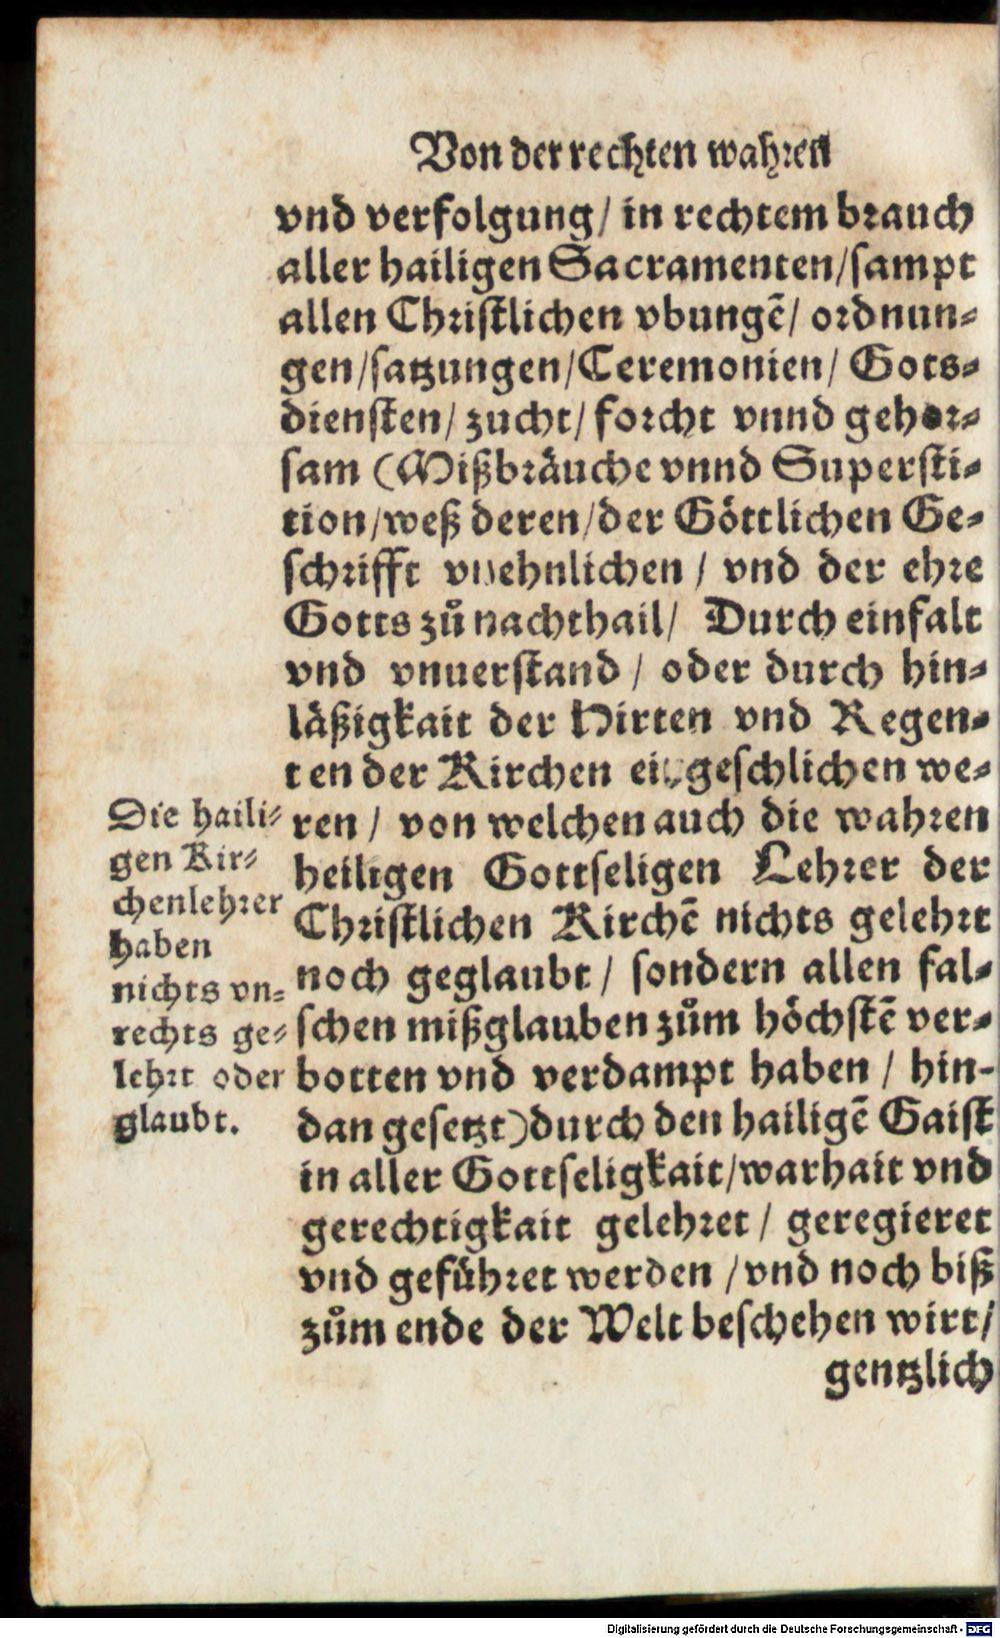 Von der rechten wahren
vnd verfolgung/ in rechtem brauch
aller hailigen Sacramenten/sampt
allen Christlichen vbungẽ/ ordnun-
gen/satzungen/Ceremonien/ Gots-
diensten/ zucht/ forcht vnnd gehor-
sam (Mißbräuche vnnd Supersti-
tion/weß deren/der Göttlichen Ge-
schrifft vnehnlichen / vnd der ehre
Gotts zů nachthail/ Durch einfalt
vnd vnuerstand / oder durch hin-
läßigkait der Hirten vnd Regen-
ten der Kirchen eingeschlichen we-
ren / von welchen auch die wahren
heiligen Gottseligen Lehrer der
Christlichen Kirchẽ nichts gelehrt
noch geglaubt / sondern allen fal-
schen mißglauben zům höchstẽ ver-
botten vnd verdampt haben / hin-
dan gesetzt) durch den hailigẽ Gaist
in aller Gottseligkait/warhait vnd
gerechtigkait gelehret / geregieret
vnd geführet werden /vnd noch biß
zům ende der Welt beschehen wirt/
gentzlich
Die haili-
gen Kir-
chenlehrer
haben
nichts vn-
rechts ge-
lehrt oder
glaubt.
Digitalisierung gefördert durch die Deutsche Forschungsgemeinschaft - DFG